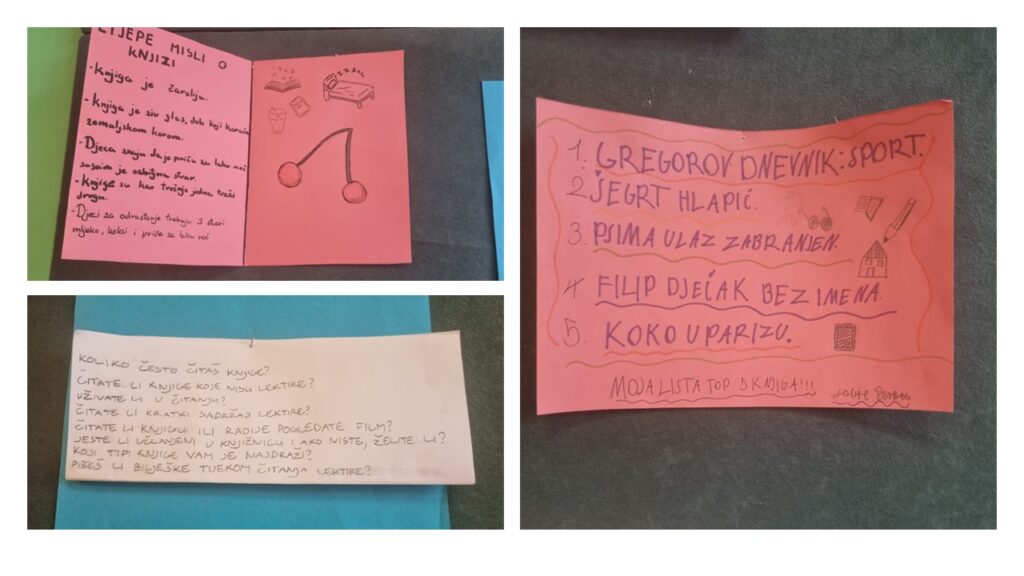 LIJEPE MISLI O
KNJIZI
- Knjiga je čarolija.
- Knjiga je živ glas, duh koji korača
zemaljskom korom.
- Djeca znaju da je priča za laku noć
sasvim je ozbiljna stvar.
- Knjige su kao trešnje jedna traži
drugu.
- Djeci za odrastanje trebaju 3 stvari
mlijeko, keksi i priče za laku noć
KOLIKO ČESTO ČITAŠ KNJIGE?
ČITATE LI KNJIGE KOJE NISU LEKTIRE?
UŽIVATE LI U ČITANJU?
ČITATE LI KRATKI SADRŽAJ LEKTIRE?
ČITATE LI KNJIGU ILI RADIJE POGLEDATE FILM?
JESTE LI UČLANJENI U KNJIŽNICU I AKO NISTE, ŽELITE LI?
KOJI TIPI KNJIGE VAM JE NAJDRAŽI?
PIŠEŠ LI BILJEŠKE TIJEKOM ČITANJA LEKTIRE?
1. GREGOROV DNEVNIK: SPORT.
2. ŠEGRT HLAPIĆ.
3. PSIMA ULAZ ZABRANJEN.
4. FILIP DJEČAK BEZ IMENA.
5. KOKO U PARIZU.
MOJA LISTA TOP 5 KNJIGA!!!